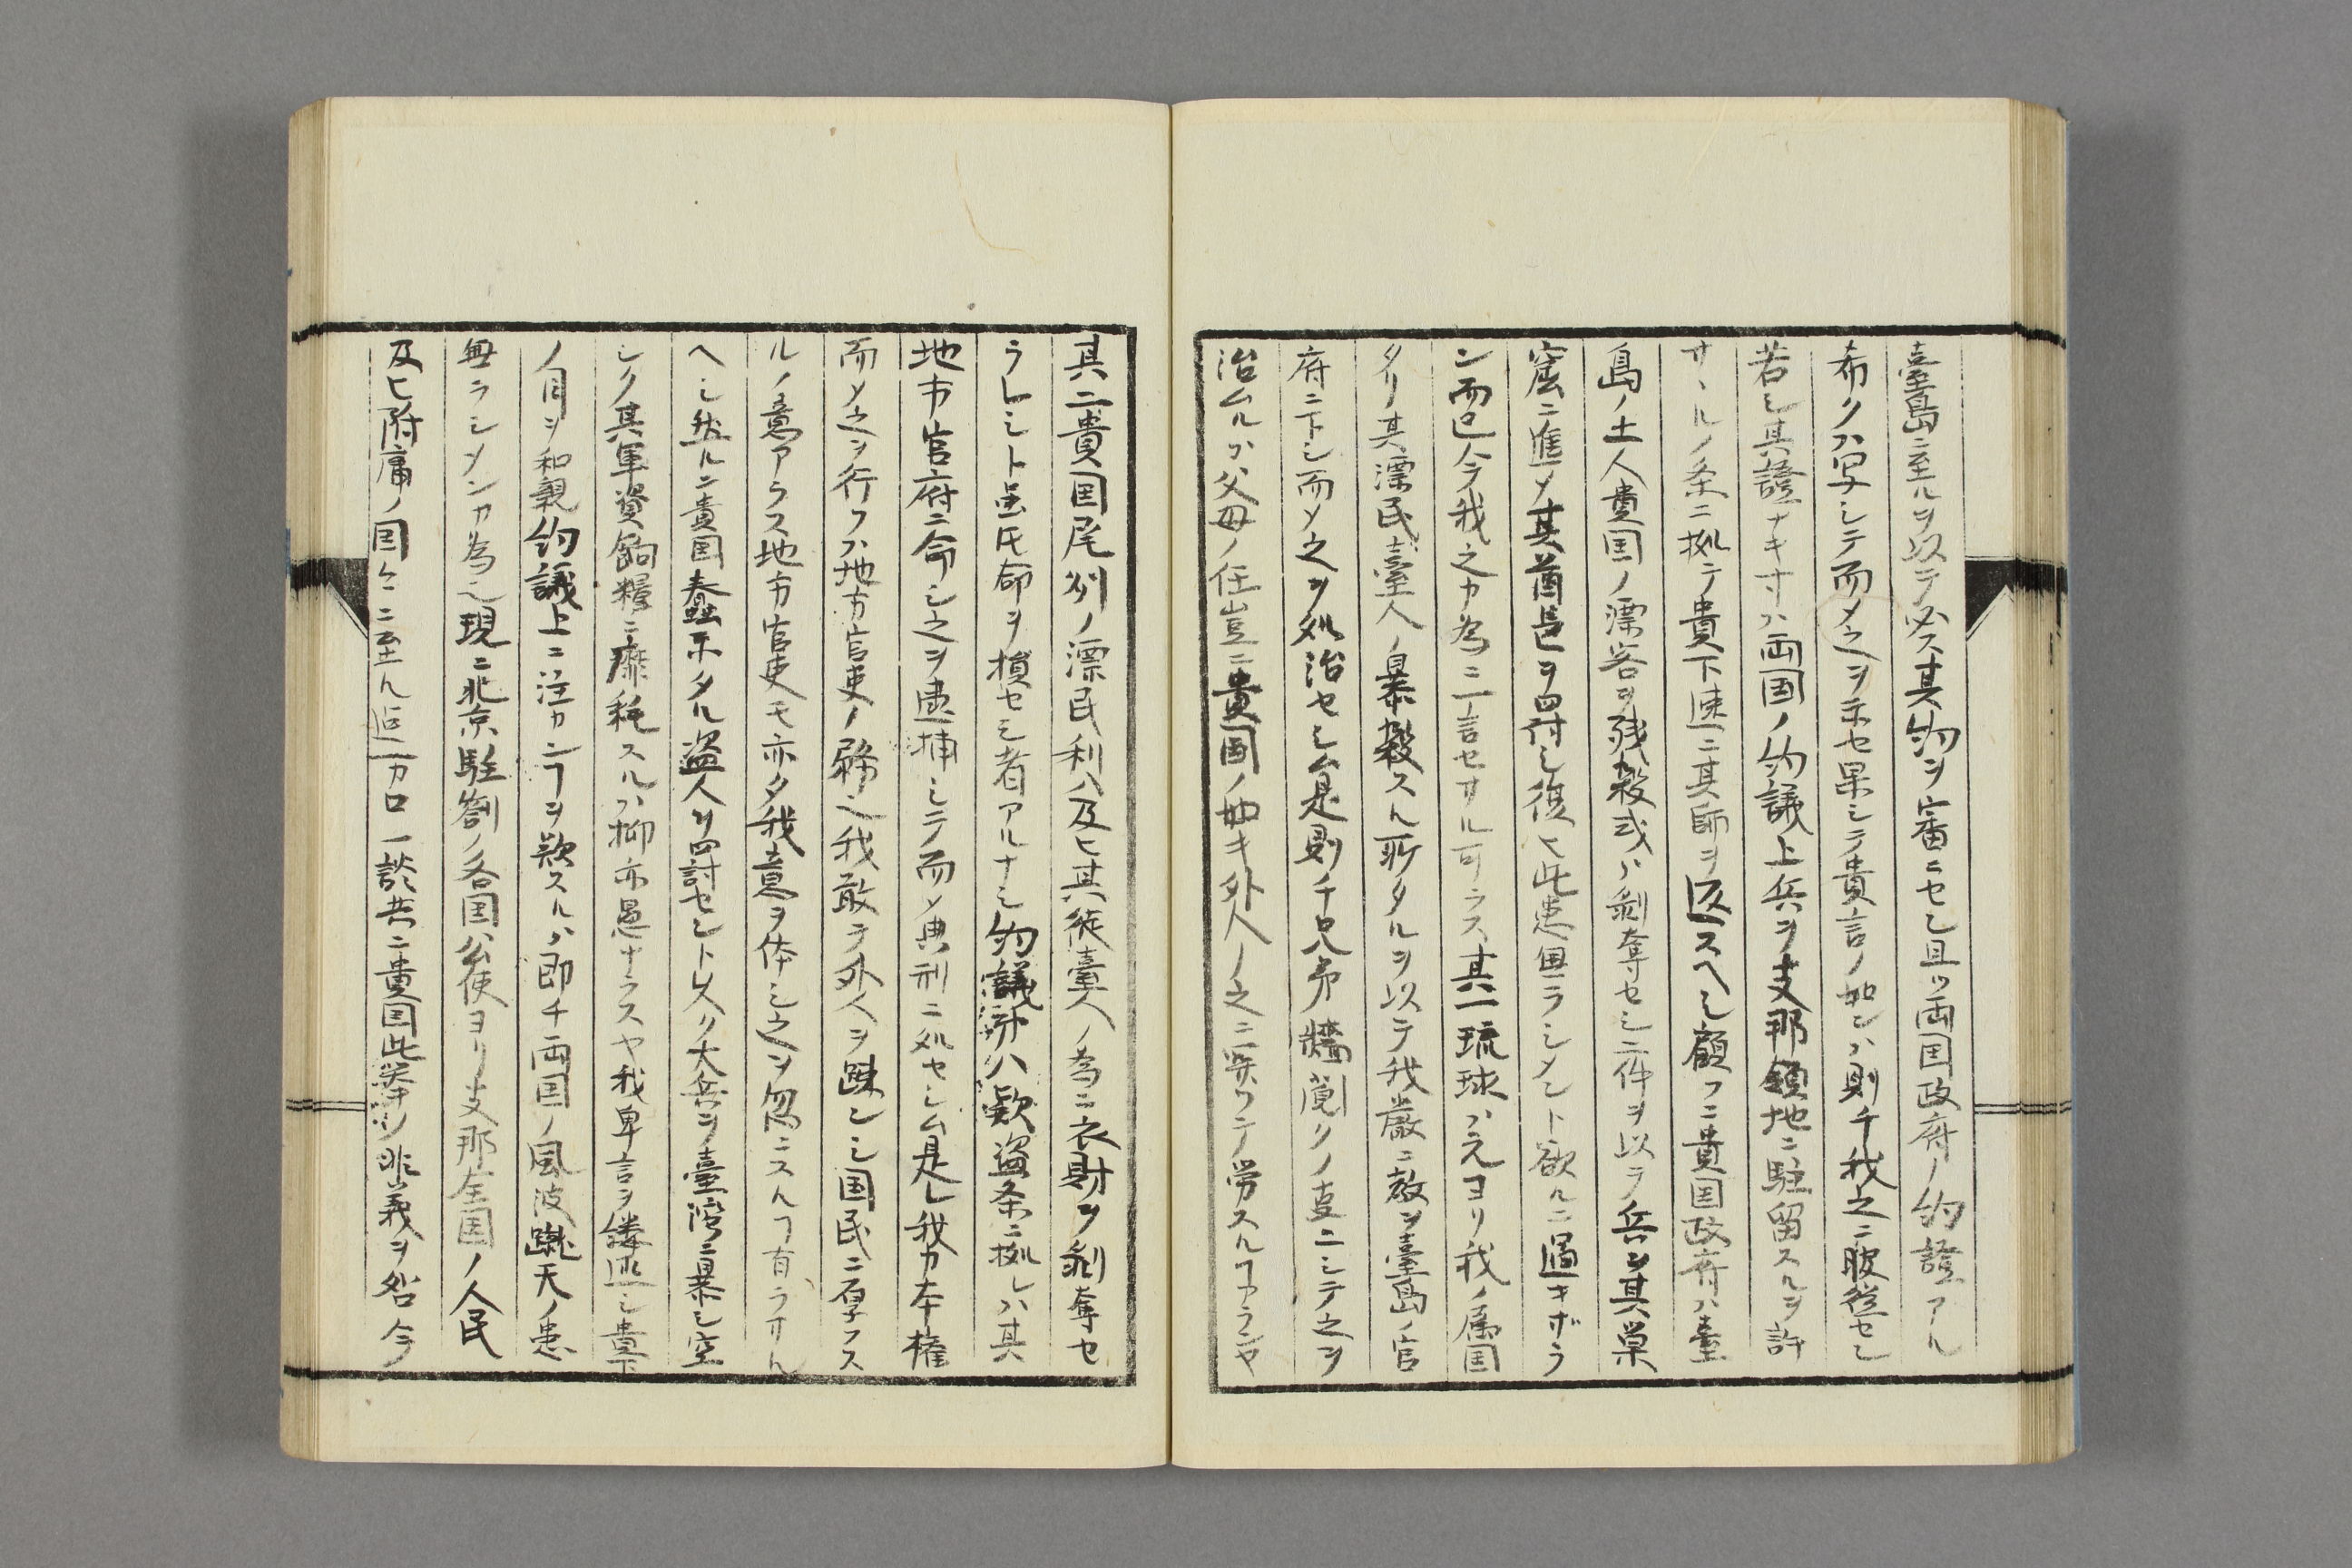 臺島ニ至ルヲ以テ必ス其約ヲ審ニセシ且ツ両国政府ノ約證アル
希クハ写シテ而メ之ヲ示セ果シテ貴言ノ如シハ則チ我之ニ服従セシ
若シ其證ナキ寸ハ両国ノ約議上兵ヲ支那領地ニ駐留スルヲ許
サヽルノ条ニ拠テ貴下速ニ其師ヲ返スヘシ顧フニ貴国政府ハ臺
島ノ土人貴国ノ漂客ヲ残殺或ハ剥奪セシ二件ヲ以テ兵ヲ其巣
窟ニ進メ其酋長ヲ囚付シ復ヒ此患無ラシメント欲ルニ過キザラ
ン而已今我之カ為ニ一言セサル可ラス其一琉球ハ元ヨリ我ノ属国
タリ其漂民臺人ノ暴殺スル所タルヲ以テ我厳ニ敖ヲ臺島ノ官
府ニ下シ而メ之ヲ処治セシム是則チ兄弟牆鬩クノ事ニシテ之ヲ
治ムルハ父母ノ任豈ニ貴国ノ如キ外人ノ之ニ労スルヿアランヤ
其二貴国尾州ノ漂民利八及ヒ其徒臺人ノ為ニ衣財ヲ剥奪セ
ラレシト虽モ命ヲ損セシ者アルナシ約議欵盗条ニ拠レハ其
地方官府ニ命シ之ヲ逮捕シテ而メ典刑ニ処セシム是レ我カ本権
而メ之ヲ行フハ地方官吏ノ務也我敢テ外人ヲ疎ンシ国民ニ厚フス
ルノ意アラス地方官吏モ亦タ我意ヲ体シ之ヲ忽ニスルヿ有ラサル
ヘシ然ルニ貴国蠢尓タル盗人ヲ囚討セント以ノ大兵ヲ臺湾ニ暴シ空
シク其軍資餉糧ニ靡耗スルハ抑亦愚ナラスヤ我卑言ヲ縷述シ貴下
ノ目ヲ和親約議上ニ注カンヿヲ欵スルハ即チ両国ノ風波蹴天ノ患
無ラシメンカ為也現ニ北京駐劄ノ各国公使ヨリ支那全国ノ人民
及ヒ附庸ノ国々ニ至ル迠一カロ一談共ニ貴国此挙ノ非義ヲ咎今